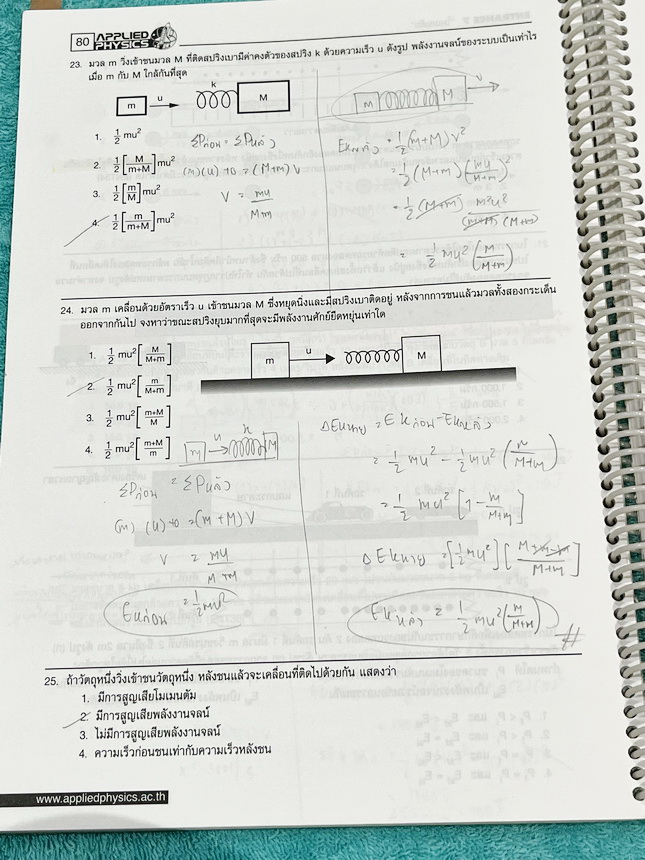 80 APPLIED PHYSICS
23. มวล m วิ่งเข้าชนมวล M ที่ติดสปริงเบามีค่าคงตัวของสปริง k ด้วยความเร็ว u ดังรูป พลังงานจลน์ของระบบเป็นเท่าไร
เมื่อ m กับ M ใกล้กันที่สุด
m u k M
m M v
1. ½ mu²
2. ½ [M/(m+M)] mu²
3. ½ [m/M] mu²
4. ½ [m/(m+M)] mu²
ΣPก่อน = ΣPหลัง
(m)(u) + 0 = (M+m) V
V = mu/(M+m)
Ekหลัง = ½ (m+M) V²
= ½ (M+m) (mu/(M+m))²
= ½ (M+m) m²u²/((m+M)(M+m))
= ½ mu² (m/(M+m))
24. มวล m เคลื่อนด้วยอัตราเร็ว u เข้าชนมวล M ซึ่งหยุดนิ่งและมีสปริงเบาติดอยู่ หลังจากการชนแล้วมวลทั้งสองกระเด็น
ออกจากกันไป จงหาว่าขณะสปริงยุบมากที่สุดจะมีพลังงานศักย์ยืดหยุ่นเท่าใด
m u M
1. ½ mu² [M/(M+m)]
2. ½ mu² [m/(M+m)]
3. ½ mu² [(m+M)/M]
4. ½ mu² [(m+M)/m]
m u M
ΣPก่อน = ΣPหลัง
(m) (u) + 0 = (m+M) V
V = mu/(M+m)
Ekก่อน = ½ mu²
ΔEkหาย = Ekก่อน - Ekหลัง
= ½ mu² - ½ mu² (m/(M+m))
= ½ mu² [1 - m/(M+m)]
ΔEkหาย = [½ mu²] [(M+m-m)/(M+m)]
Ekหลัง = ½ mu² (m/(M+m)) #
25. ถ้าวัตถุหนึ่งวิ่งเข้าชนวัตถุหนึ่ง หลังชนแล้วจะเคลื่อนที่ติดไปด้วยกัน แสดงว่า
1. มีการสูญเสียโมเมนตัม
2. มีการสูญเสียพลังงานจลน์
3. ไม่มีการสูญเสียพลังงานจลน์
4. ความเร็วก่อนชนเท่ากับความเร็วหลังชน
www.appliedphysics.ac.th